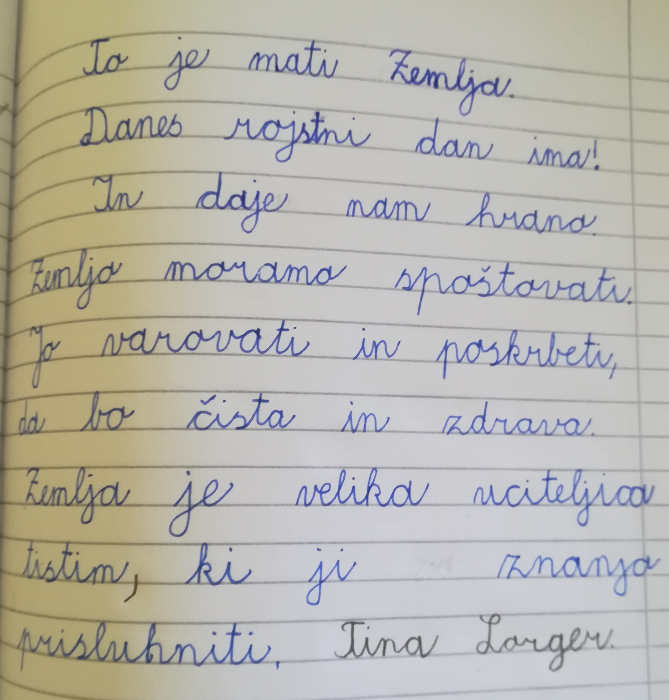 To je mati Zemlja.
Danes rojstni dan ima!
In daje nam hrano.
Zemljo moramo spoštovati.
Jo varovati in poskrbeti,
da bo čista in zdrava.
Zemlja je velika uciteljica
tistim, ki ji znanja
prisluhniti. Tina Larger.